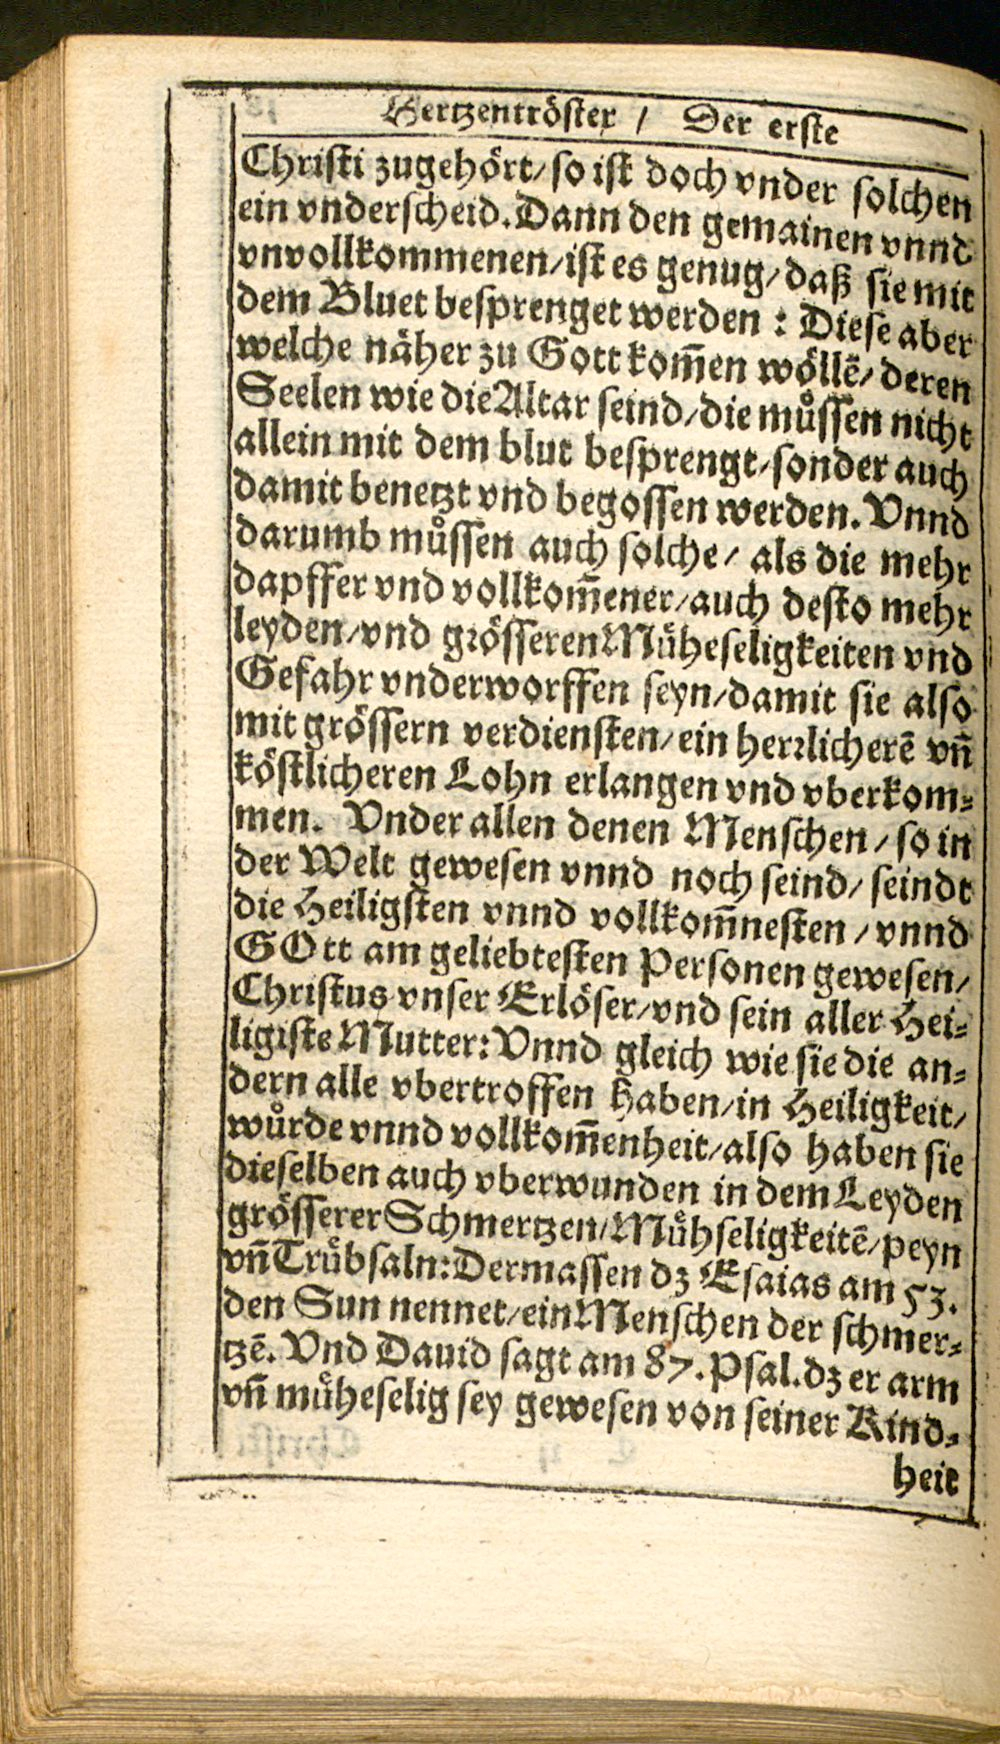 Hertzentröster / Der erste
Christi zugehört / so ist doch vnder solchen
ein vnderscheid. Dann den gemainen vnnd
vnvollkommenen / ist es genug / daß sie mit
dem Bluet besprenget werden : Diese aber
welche näher zu Gott kom̄en wöllē / deren
Seelen wie die Altar seind / die můssen nicht
allein mit dem blut besprengt / sonder auch
damit benetzt vnd begossen werden. Vnnd
darumb můssen auch solche / als die mehr
dapffer vnd vollkom̄ener / auch desto mehr
leyden / vnd grösseren Müheseligkeiten vnd
Gefahr vnderworffen seyn / damit sie also
mit grössern verdiensten / ein herrlicherē vn̄
köstlicheren Lohn erlangen vnd vberkom⸗
men. Vnder allen denen Menschen / so in
der Welt gewesen vnnd noch seind / seindt
die Heiligsten vnnd vollkom̄nesten / vnnd
GOtt am geliebtesten Personen gewesen /
Christus vnser Erlöser / vnd sein aller Hei⸗
ligiste Mutter: Vnnd gleich wie sie die an⸗
dern alle vbertroffen haben / in Heiligkeit /
wůrde vnnd vollkom̄enheit / also haben sie
dieselben auch vberwunden in dem Leyden
grösserer Schmertzen / Můhseligkeitē / peyn
vn̄ Trůbsaln: Dermassen dz Esaias am 53.
den Sun nennet / ein Menschen der schmer⸗
tzē. Vnd Dauid sagt am 87. Psal. dz er arm
vn̄ müheselig sey gewesen von seiner Kind⸗
heit